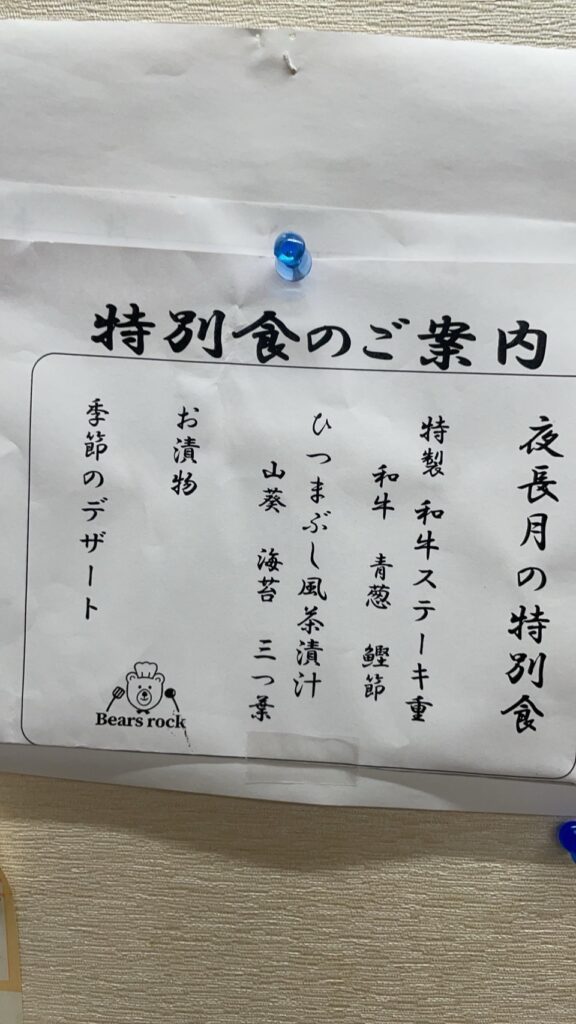 特別食のご案内
夜長月の特別食
特製 和牛ステーキ重
和牛 青葱 鰹節
ひつまぶし風茶漬汁
山葵 海苔 三つ葉
お漬物
季節のデザート
Bears rock